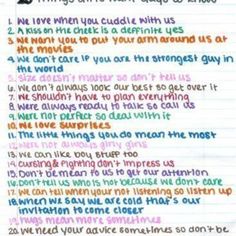 THINGS GIRLS WANT GUYS TO KNOW
1. We love when you cuddle with us
2. A kiss on the cheek is a deffinite yes
3. We want you to put your arm around us at
the movies
4. We don't care if you are the strongest guy in
the world
5. Size doesn't matter so don't tell us
6. We don't always look our best so get over it
7. We shouldn't have to plan everything
8. Were always ready to talk so call us
9. Were not perfect so deal with it
10. We love surprises
11. The little things you do mean the most
12. Were not always girly girls
13. We can like boy stuff too
14. Cursing & fighting don't impress us
15. Don't be mean to us to get our attention
16. Don't tell us who's not because we don't care
17. We can tell when your not listening so listen up
18. When we say we are cold that's our
invitation to come closer
19. Hugs mean more sometimes
20. We need your advice sometimes so don't be